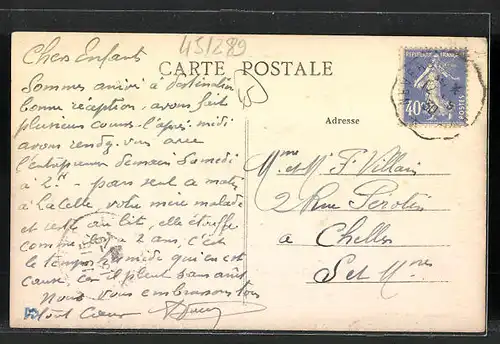 45/289
CARTE POSTALE
45
REPUBLIQUE FRANÇAISE
40c
POSTES
Chers Enfants
Sommes arrivé à destination
bonne réception, avons fait
plusieurs courses l'après-midi
avons rendez-vous avec
l'entrepreneur demain Samedi
à 2h - parti seul ce matin
à La Celle, votre mère malade
et reste au lit, elle étouffe
comme il y a 2 ans, c'est
le temps humide qui en est
cause, car il pleut sans arrêt
Nous vous embrassons tous
de tout Cœur
Adresse
Mme et Mr F. Villain
2 Rue Serotin
à Chelles
S et Mne